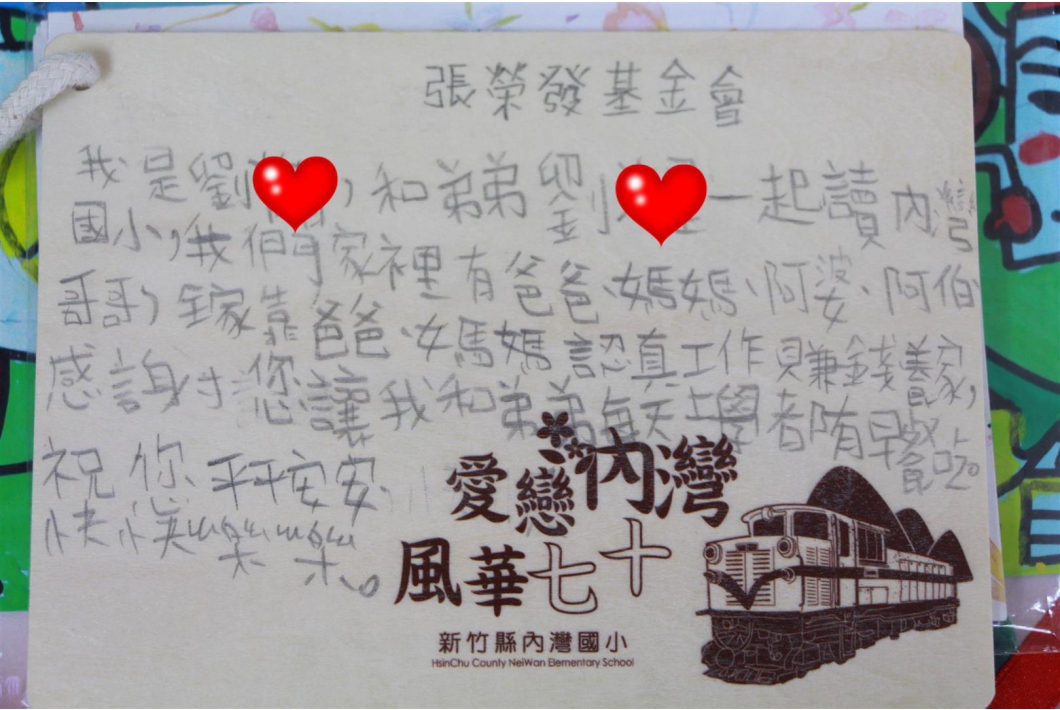 張榮發基金會
我是劉，和弟弟劉一起讀內灣
國小，我們家裡有爸爸、媽媽、阿婆、阿伯、
哥哥，全家靠爸爸、媽媽認真工作賺錢養家，
感謝您讓我和弟弟每天上學都有早餐吃。
祝您平平安安、
快快樂樂。
愛戀內灣
風華七十
新竹縣內灣國小
HsinChu County NeiWan Elementary School